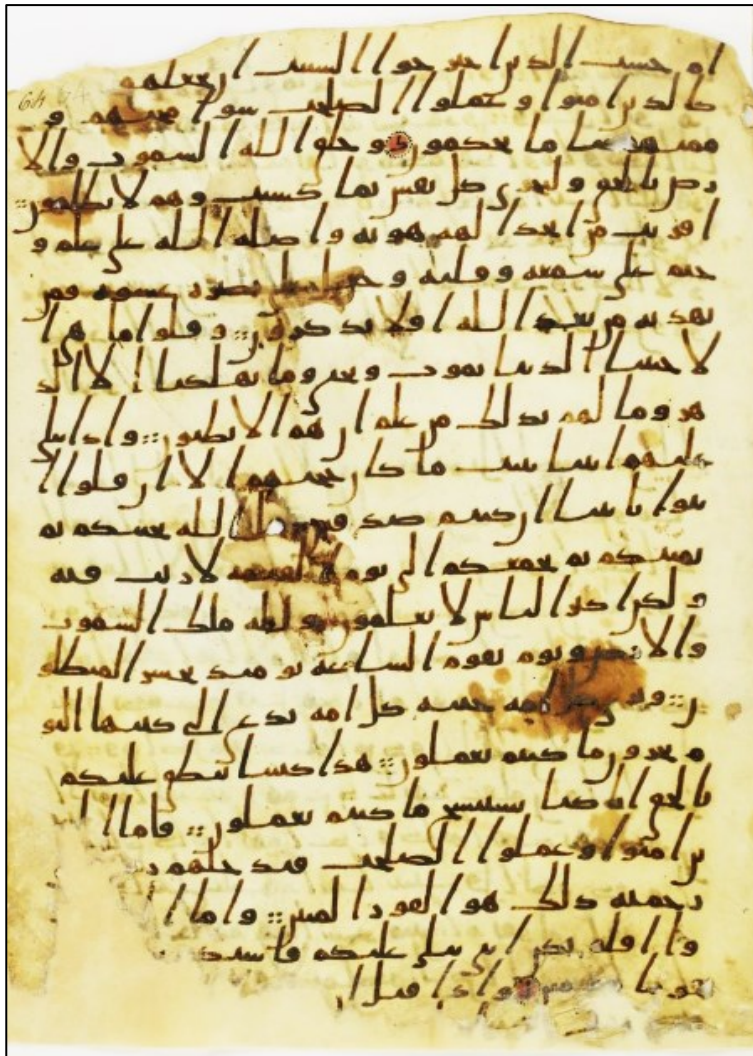 64
ام حسب الذين اجترحوا السيت ان نجعلهم
كالذين امنوا وعملوا الصلحت سوا محيهم و
ممتهم سا ما يحكمون وخلق الله السموت والا
رض بالحق ولتجزى كل نفس بما كسبت وهم لا يظلمون ::
افريت من اتخذ الهه هويه واضله الله على علم و
ختم على سمعه وقلبه وجعل على بصره غشوه فمن
يهديه من بعد الله افلا تذكرون :: وقلوا ما هي ا
لا حيتنا الدنيا نموت ونحي وما يهلكنا الا الد
هر وما لهم بذلك من علم ان هم الا يظنون :: واذا تتلى
عليهم ايتنا بينت ما كان حجتهم الا ان قلوا ا
يتوا باباينا ان كنتم صدقين قل الله يحييكم ثم
يميتكم ثم يجمعكم الى يوم القيمه لا ريب فيه
ولكن اكثر الناس لا يعلمون ولله ملك السموت
والارض ويوم تقوم الساعه يوميذ يخسر المبطلو
ن :: وترى كل امه جثيه كل امه تدعى الى كتبها اليو
م تجزون ما كنتم تعملون :: هذا كتبنا ينطق عليكم
بالحق انا كنا نستنسخ ما كنتم تعملون :: فاما ا
ين امنوا وعملوا الصلحت فيدخلهم ر
رحمته ذلك هو الفوز المبين :: واما ا
وا افلم تكن ايتي تتلى عليكم فاستكـ
قوما مجرمين واذا قيل ان